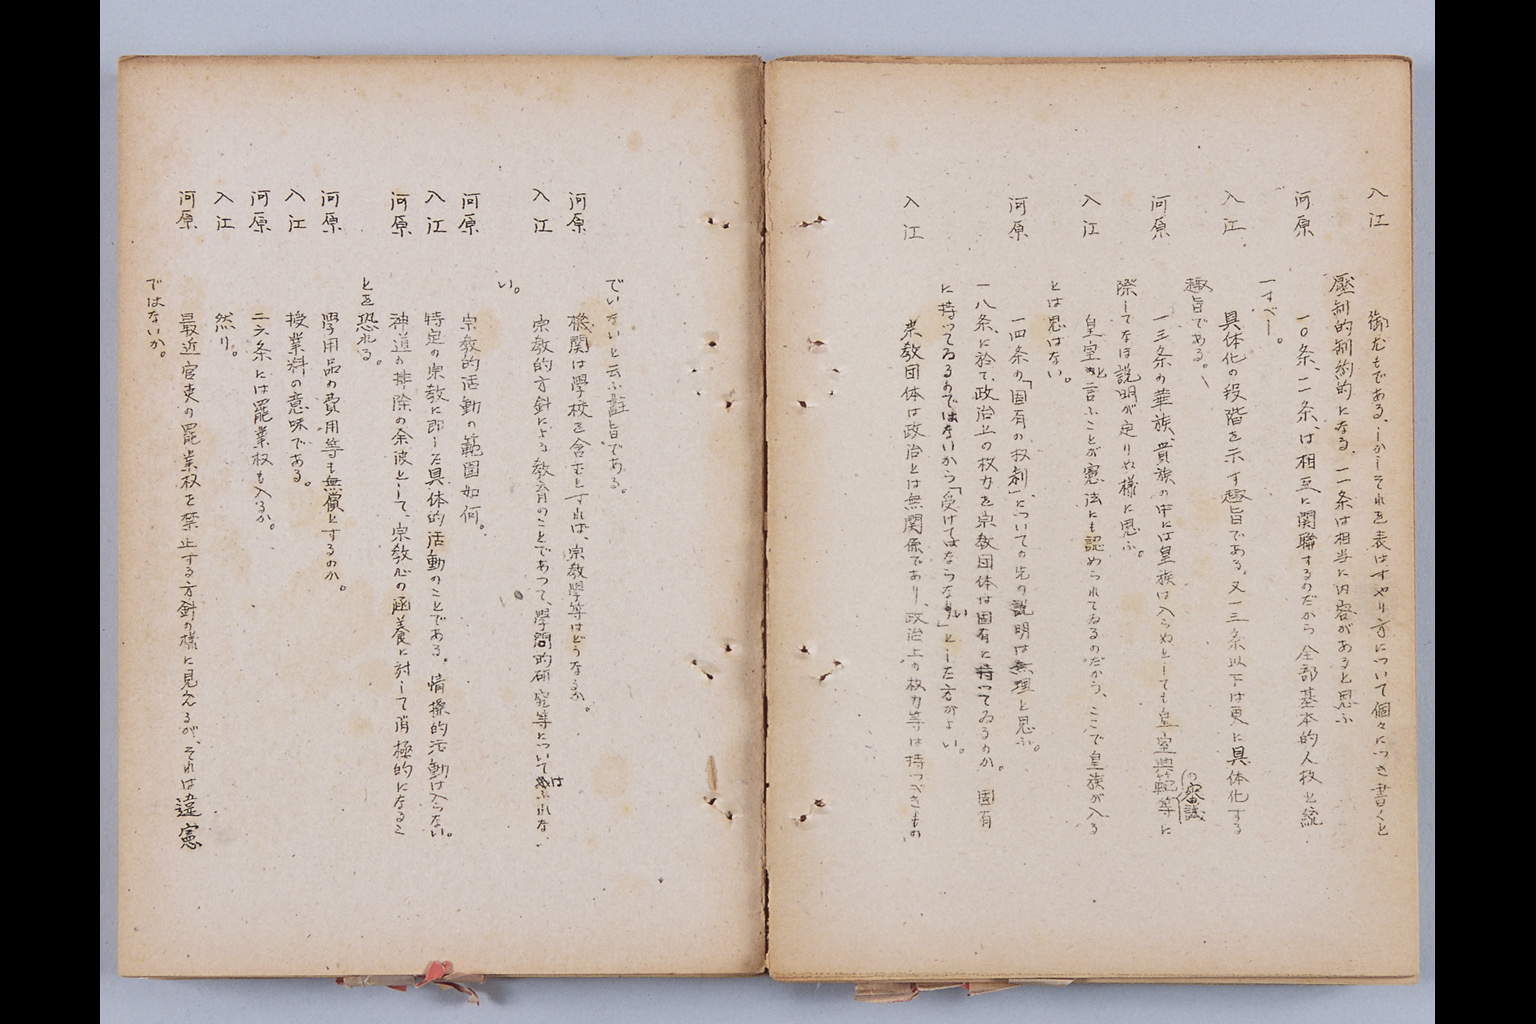 入江　御尤もである、しかしそれを表はすやり方について個々につき書くと
壓制的制約的になる、一一条は相当に内容があると思ふ
河原　一〇条、一一条、は相互に関聯するのだから全部基本的人权と統
一すべし。
入江　具体化の段階を示す趣旨である。又一三条以下は更に具体化する
趣旨である。
河原　一三条の華族、貴族の中には皇族は入らぬとしても皇室典範等の審議に
際してなほ説明が定りぬ様に思ふ。
入江　皇室と言ふことが憲法にも認められてゐるのだから、ここで皇族が入る
とは思はない。
河原　一四条の「固有の权利」についての先の説明は無理と思ふ。
一八条に於て、政治上の权力を宗教団体は固有に持つてゐるのか。固有
に持つてゐるのではないから「受けてはならない」とした方がよい。
入江　宗教団体は政治とは無関係であり、政治上の权力等は持つべきもの
でいないと云ふ趣旨である。
河原　機関は學校を含むとすれば、宗教學等はどうなるか。
入江　宗教的方針による教育のことであつて、學問的研究等についてはふれな
い。
河原　宗教的活動の範囲如何。
入江　特定の宗教に即した具体的活動のことである。情操的活動は入らない。
河原　神道の排除の余波として、宗教心の涵養に対して消極的になるこ
とを恐れる。
河原　學用品の費用等も無償とするのか。
入江　授業料の意味である。
河原　二六条には罷業权も入るか。
入江　然り。
河原　最近官吏の罷業权を禁止する方針の様に見えるが、それは違憲
ではないか。